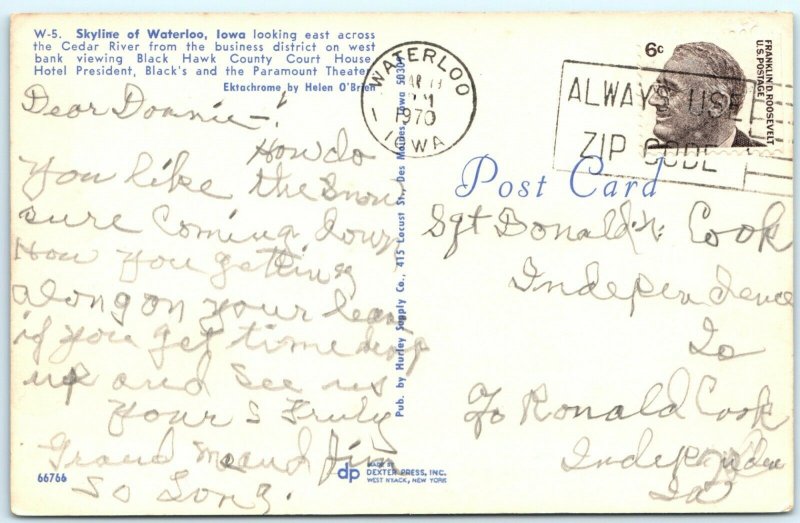 W-5. Skyline of Waterloo, Iowa looking east across
the Cedar River from the business district on west
bank viewing Black Hawk County Court House,
Hotel President, Black's and the Paramount Theater.
Ektachrome by Helen O'Brien
Dear Donnie-!
How do
you like the Snow
sure Coming down
How you getting
along on your leave
if you get time drop
up and see us
Your S Truly
Grand ma and Jim
So Long.
66766
Pub. by Hurley Supply Co., 415 Locust St., Des Moines, Iowa 50309
dp
MADE BY
DEXTER PRESS, INC.
WEST NYACK, NEW YORK
WATERLOO
1970
IOWA
ALWAYS USE
ZIP CODE
6c
FRANKLIN D. ROOSEVELT
U.S. POSTAGE
Post Card
Sgt Donald N. Cook
Independence
Io
To Ronald Cook
Independence
Ia